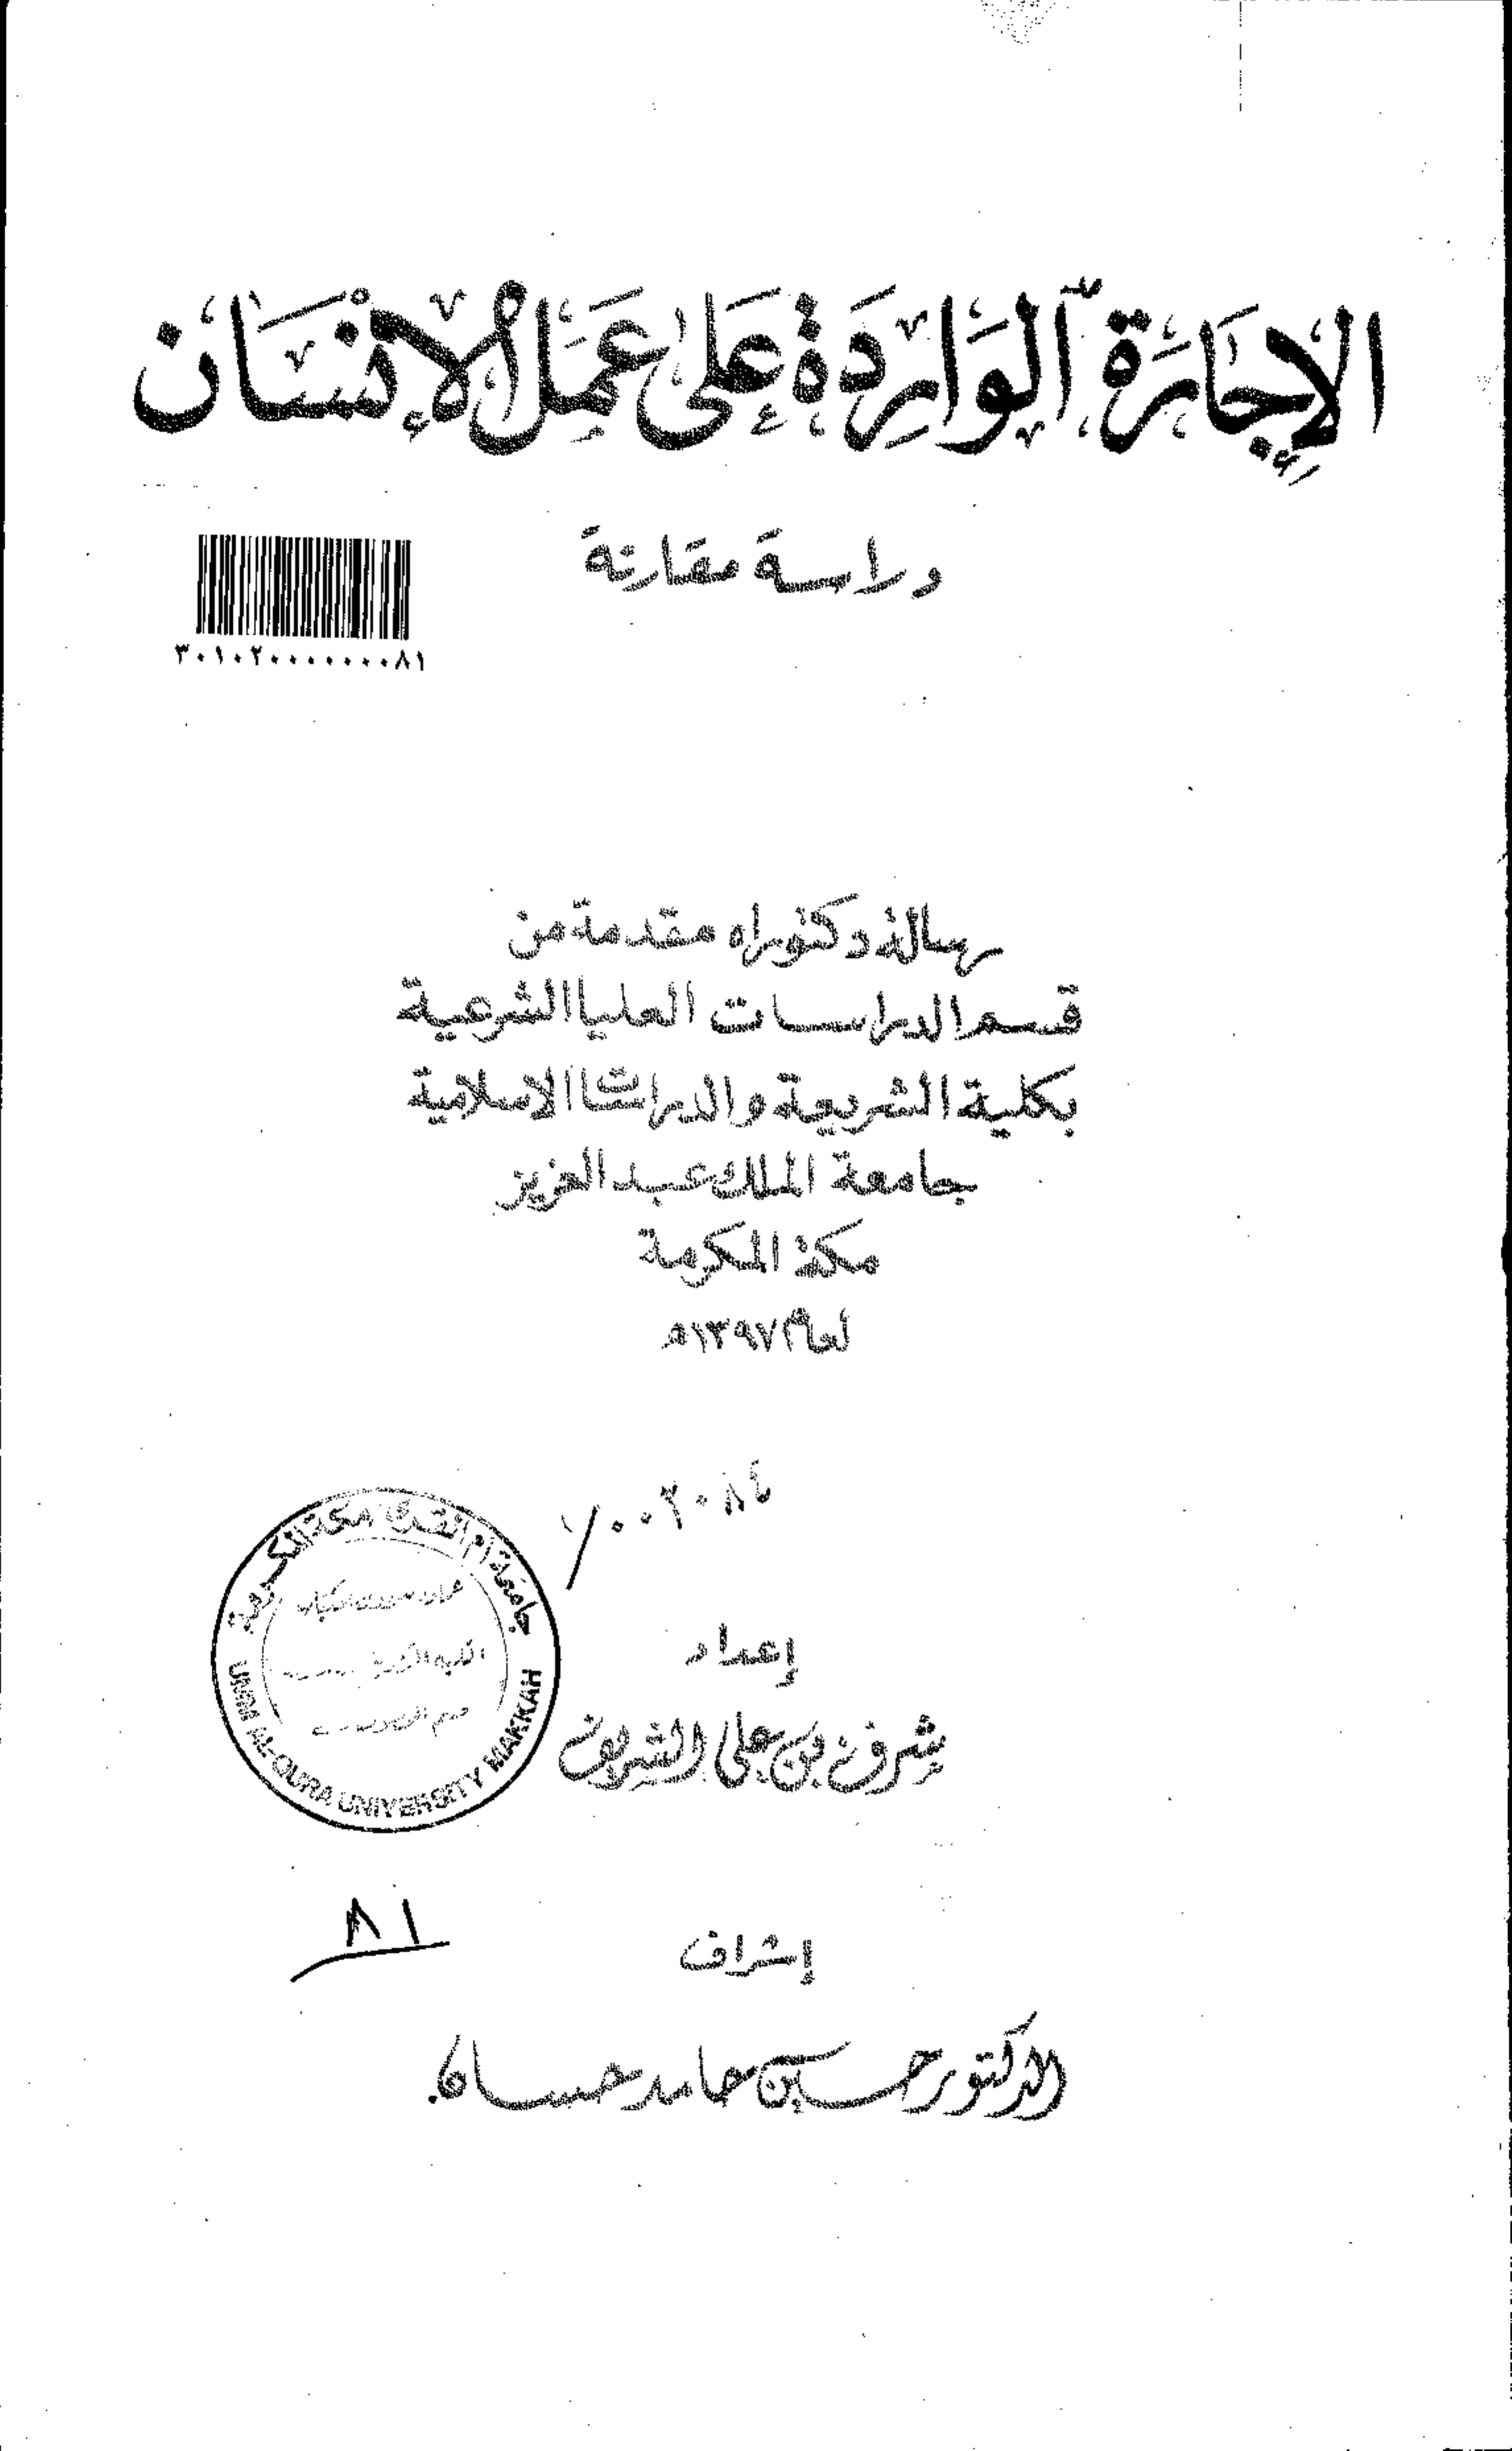 الإِجَارَة الوَارِدَة عَلى عَمَل الإِنْسَان
دراسة مقارنة
٣٠١٠٢٠٠٠٠٠٠٠٨١
رسالة دكتوراه مقدمة من
قسم الدراسات العليا الشرعية
بكلية الشريعة والدراسات الاسلامية
جامعة الملك عبد العزيز
مكة المكرمة
لعام ١٣٩٧ه
٠٠٢٠٨٤
جامعة أم القرى مكة المكرمة
UMM AL-QURA UNIVERSITY MAKKAH
إعداد
شرف بن علي الشريف
٨١
إشراف
الدكتور حسين حامد حسان